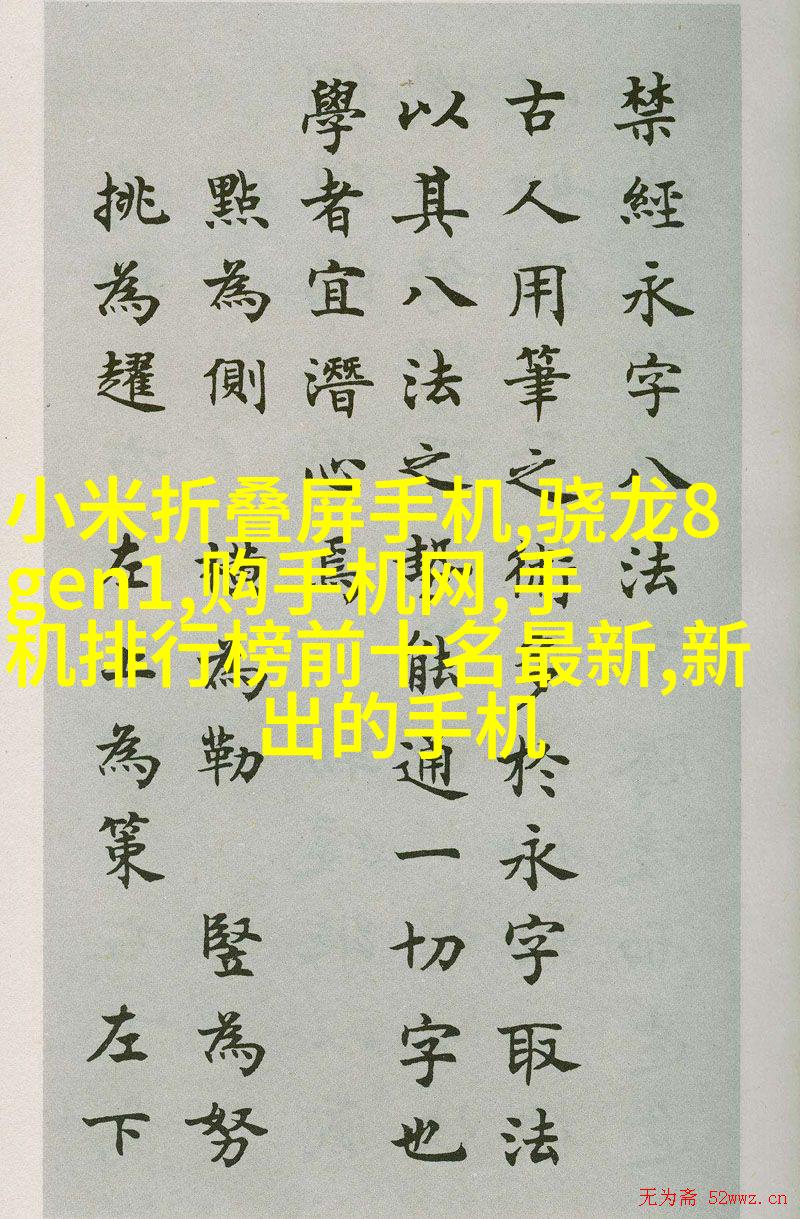 禁經永字八法
古人用筆之術多於永字取法
以其八法之勢能通一切字也
學者宜潛心焉
點為側 橫為勒 豎為努
挑為趯 左上為策 左下
小米折叠屏手机,骁龙8
gen1,购手机网,手
机排行榜前十名最新,新
出的手机
无为斋 52wwz.cn